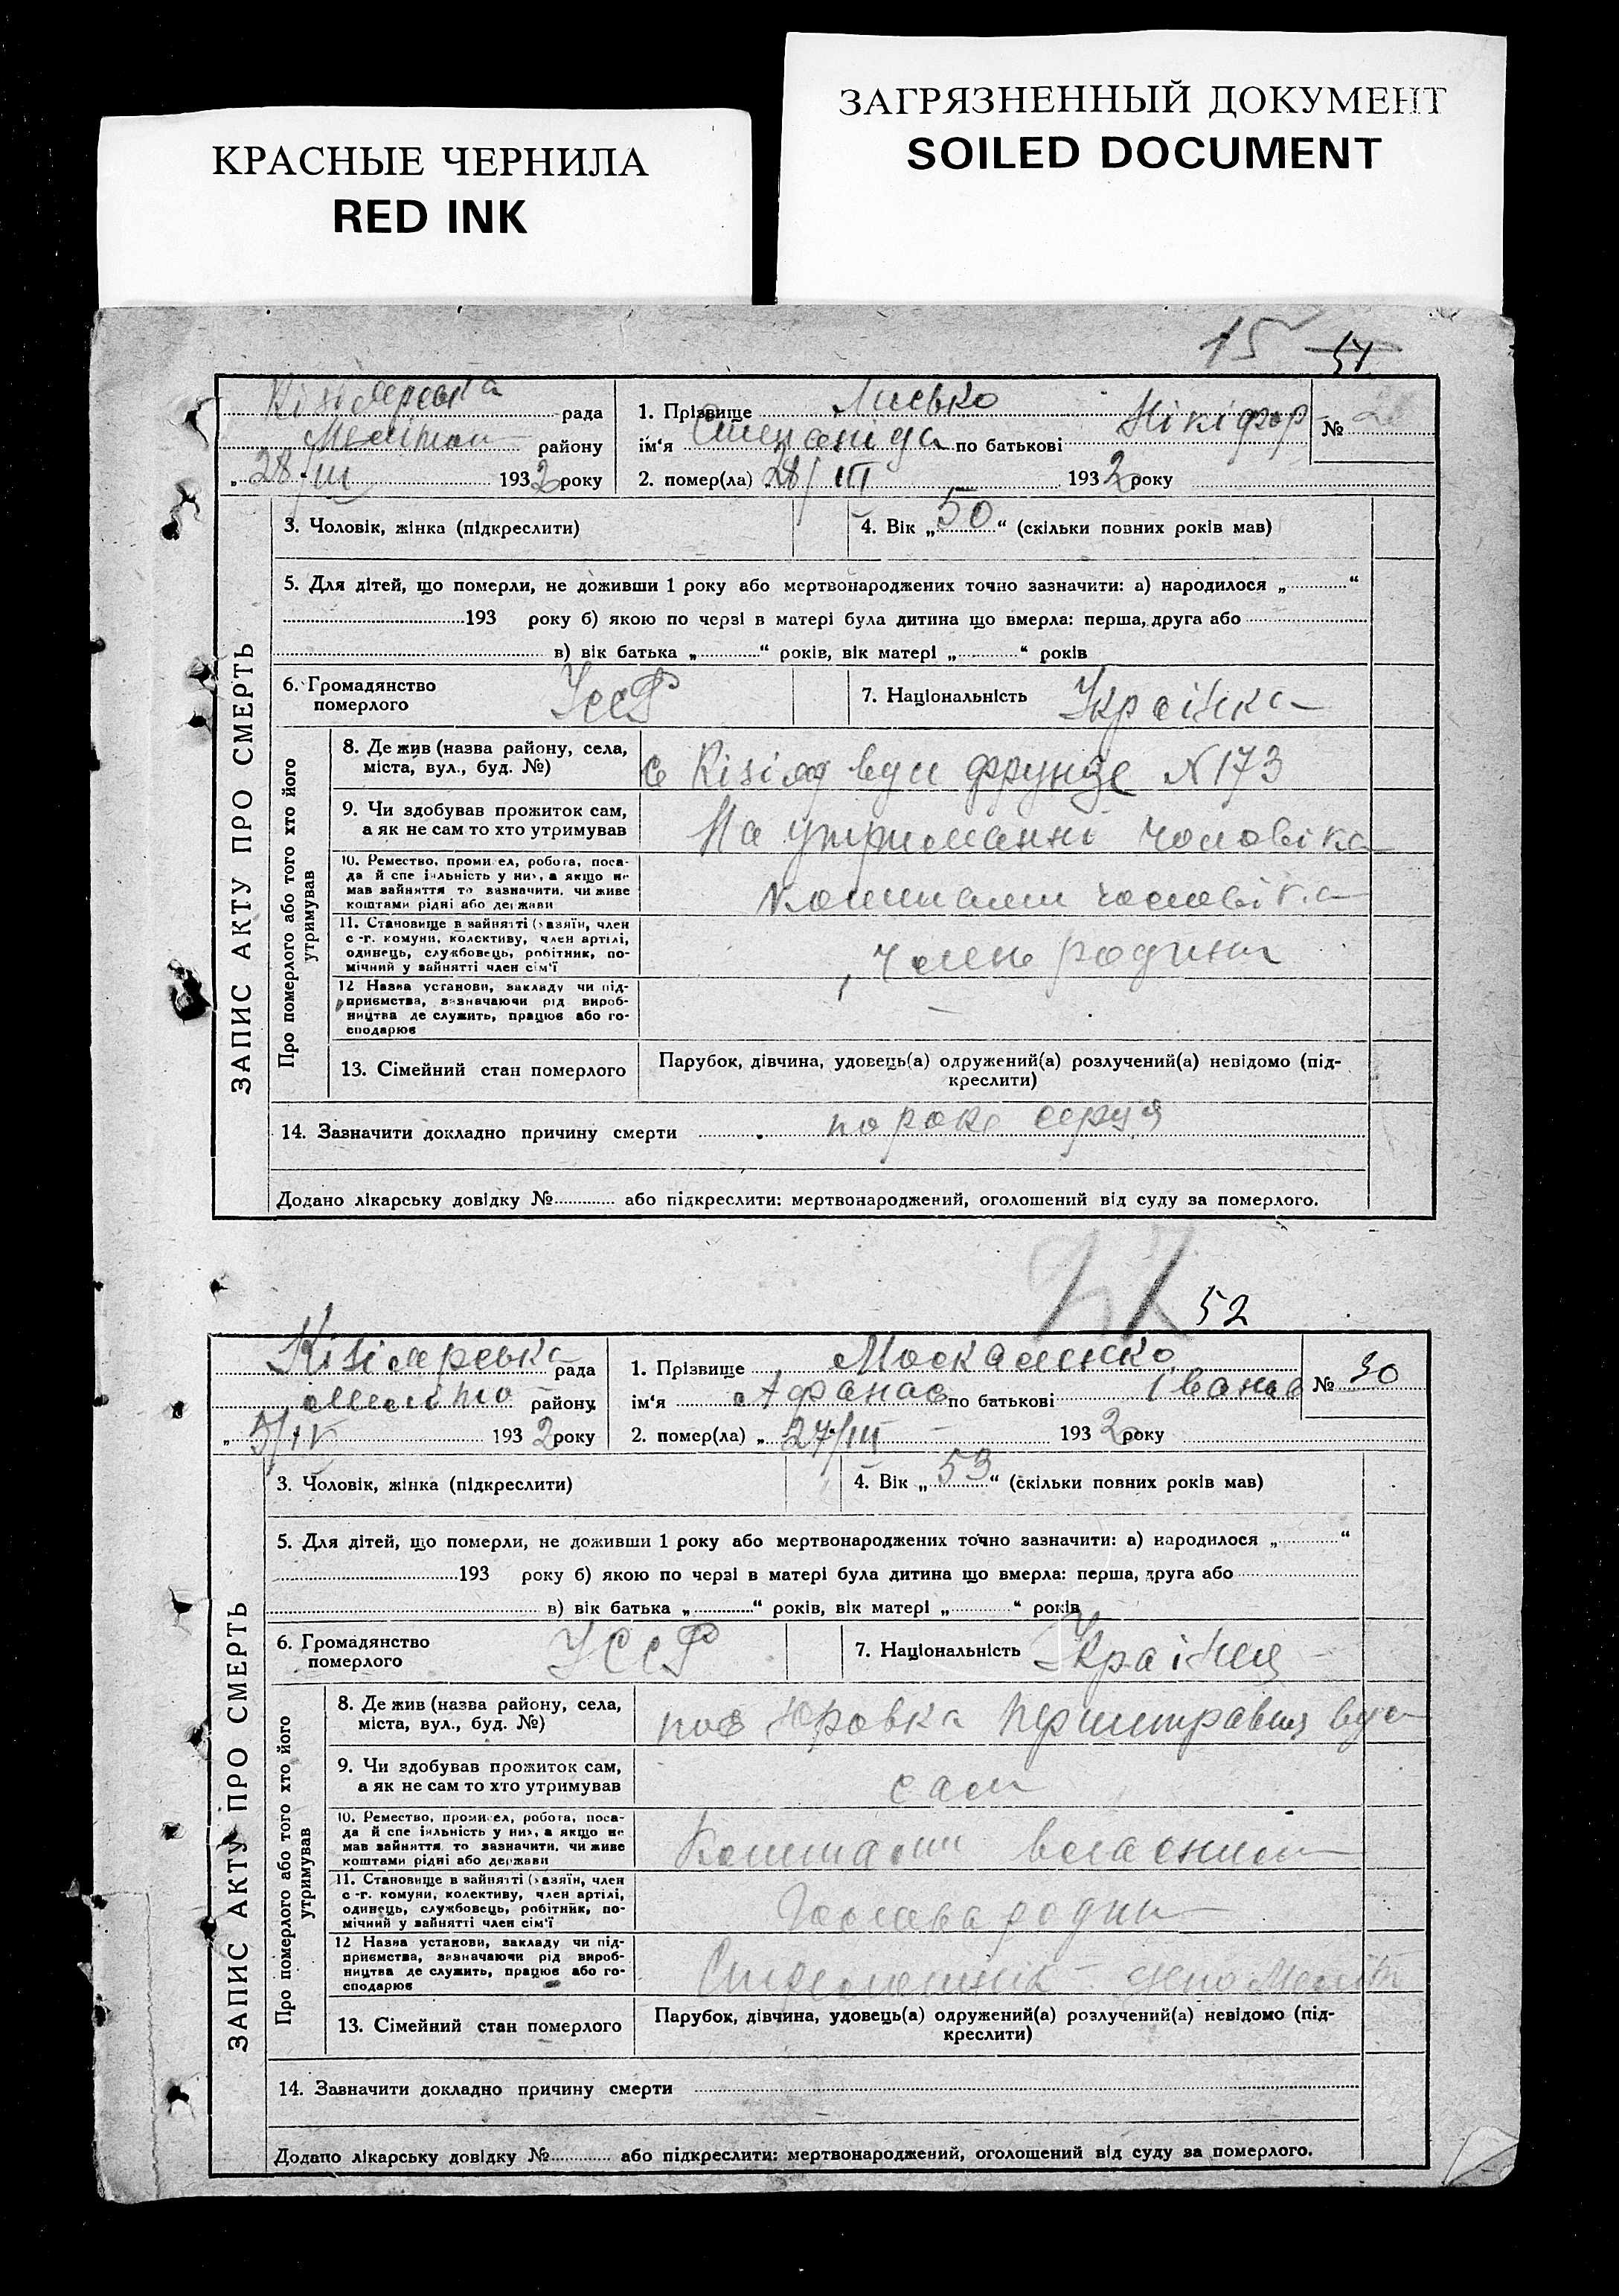 КРАСНЫЕ ЧЕРНИЛА
RED INK
ЗАГРЯЗНЕННЫЙ ДОКУМЕНТ
SOILED DOCUMENT
15 51
ЗАПИС АКТУ ПРО СМЕРТЬ
Кізіярська рада
Мелітоп району
„ 28/III 1932 року
1. Прізвище Лисько
ім'я Степаніда по батькові Нікіфор
2. помер(ла) „ 28/III 1932 року
№
3. Чоловік, жінка (підкреслити)
4. Вік „ 50 “ (скільки повних років мав)
5. Для дітей, що померли, не доживши 1 року або мертвонароджених точно зазначити: а) народилося „ “
193 року б) якою по черзі в матері була дитина що вмерла: перша, друга або
в) вік батька „ “ років, вік матері „ “ років
6. Громадянство
померлого
УССР
7. Національність Українка
Про померлого або того хто його
утримував
8. Де жив (назва району, села,
міста, вул., буд. №)
с Кізіяр вул Фрунзе N 173
9. Чи здобував прожиток сам,
а як не сам то хто утримував
На утриманні чоловіка
10. Ремество, промисел, робота, поса-
да й спеціяльність у них, а якщо не
мав зайняття то зазначити, чи живе
коштами рідні або держави
Коштами чоловіка
11. Становище в зайнятті (хазяїн, член
с.-г. комуни, колективу, член артілі,
одинець, службовець, робітник, по-
мічний у зайнятті член сім'ї
Член родини
12 Назва установи, закладу чи під-
приємства, зазначаючи рід вироб-
ництва де служить, працює або го-
сподарює
13. Сімейний стан померлого
Парубок, дівчина, удовець(а) одружений(а) розлучений(а) невідомо (під-
креслити)
14. Зазначити докладно причину смерти порок серця
Додано лікарську довідку № або підкреслити: мертвонароджений, оголошений від суду за померлого.
52
ЗАПИС АКТУ ПРО СМЕРТЬ
Кізіярська рада
Меліто району
„ 5/IV 1932 року
1. Прізвище Москаленко
ім'я Афанас по батькові Іванов
2. помер(ла) „ 27/III 1932 року
№ 30
3. Чоловік, жінка (підкреслити)
4. Вік „ 53 “ (скільки повних років мав)
5. Для дітей, що померли, не доживши 1 року або мертвонароджених точно зазначити: а) народилося „ “
193 року б) якою по черзі в матері була дитина що вмерла: перша, друга або
в) вік батька „ “ років, вік матері „ “ років
6. Громадянство
померлого
УССР
7. Національність Українец
Про померлого або того хто його
утримував
8. Де жив (назва району, села,
міста, вул., буд. №)
пос Юровка вул
9. Чи здобував прожиток сам,
а як не сам то хто утримував
сам
10. Ремество, промисел, робота, поса-
да й спеціяльність у них, а якщо не
мав зайняття, то зазначити, чи живе
коштами рідні або держави
Коштами власними
11. Становище в зайнятті (хазяїн, член
с.-г. комуни, колективу, член артілі,
одинець, службовець, робітник, по-
мічний у зайнятті член сім'ї
Голова родини
12 Назва установи, закладу чи під-
приємства, зазначаючи рід вироб-
ництва де служить, працює або го-
сподарює
депо Меліт
13. Сімейний стан померлого
Парубок, дівчина, удовець(а) одружений(а) розлучений(а) невідомо (під-
креслити)
14. Зазначити докладно причину смерти
Додано лікарську довідку № або підкреслити: мертвонароджений, оголошений від суду за померлого.